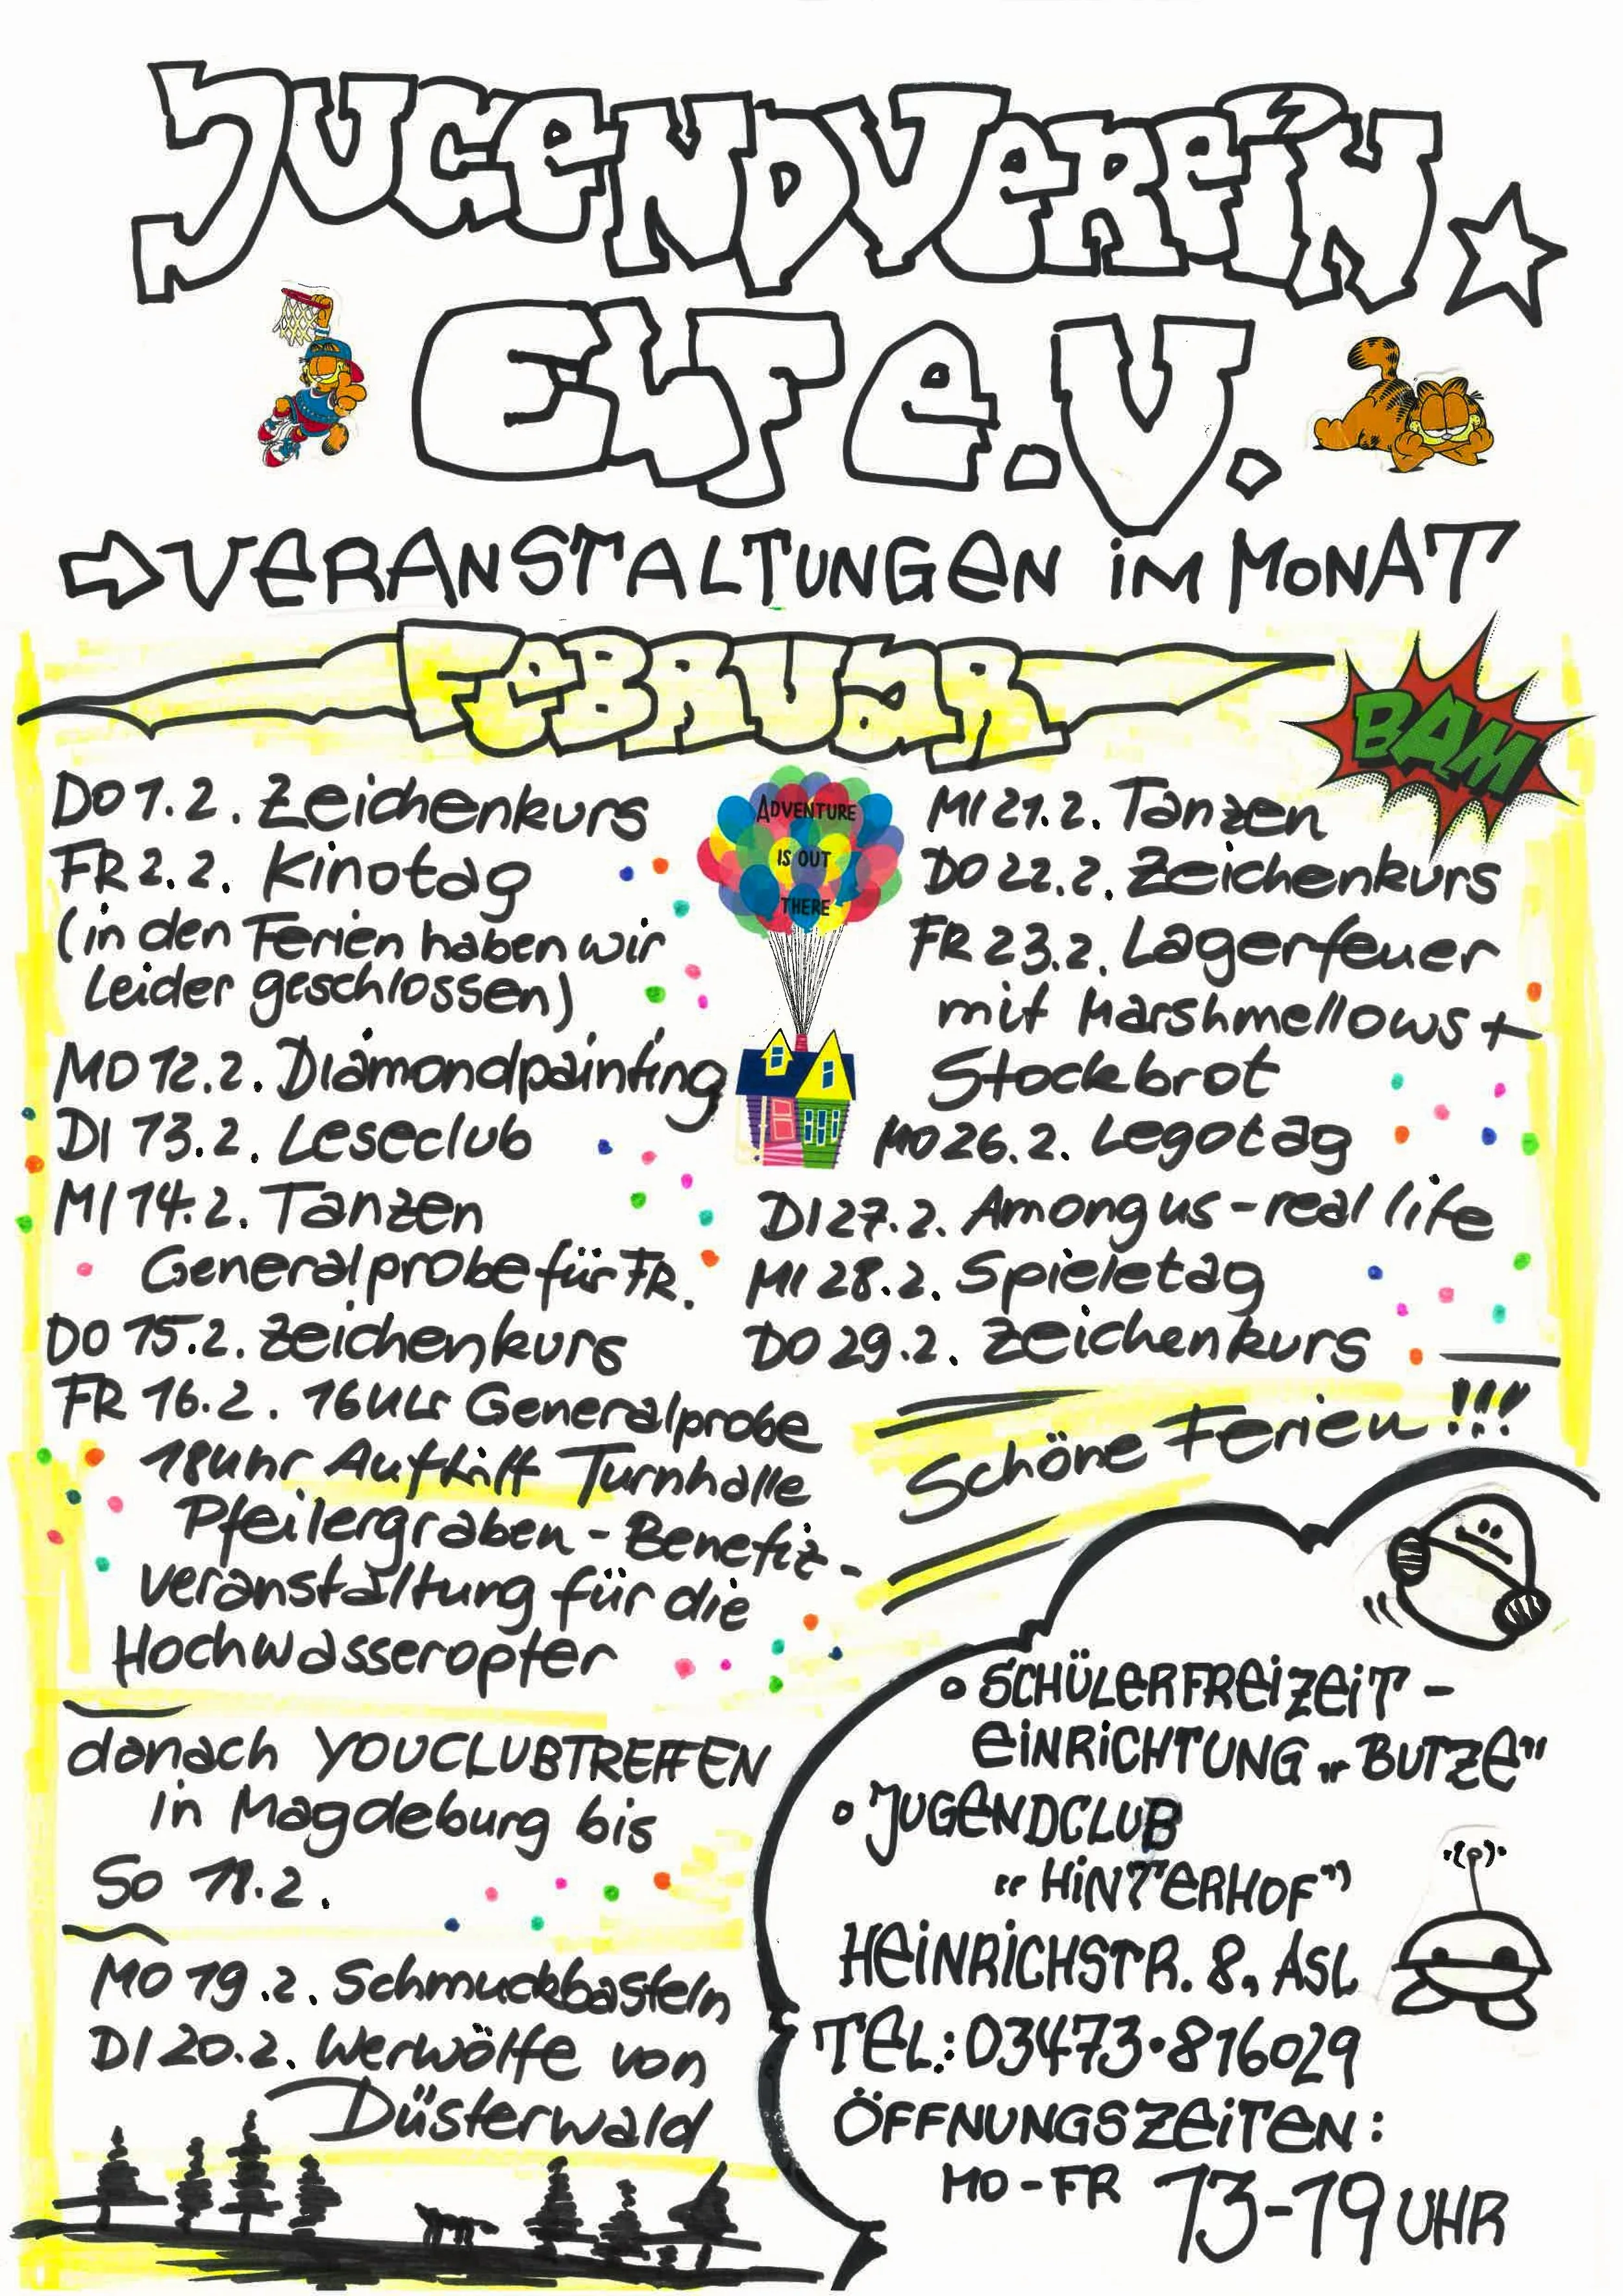 JUGENDVEREIN
ELF e.V.
VERANSTALTUNGEN IM MONAT
FEBRUAR
BAM
DO 1.2. Zeichenkurs
FR 2.2. Kinotag
(in den Ferien haben wir
leider geschlossen)
MO 12.2. Diamondpainting
DI 13.2. Leseclub
MI 14.2. Tanzen
Generalprobe für FR.
DO 15.2. Zeichenkurs
FR 16.2. 16 Uhr Generalprobe
18 Uhr Auftritt Turnhalle
Pfeilergraben - Benefiz-
veranstaltung für die
Hochwasseropfer
danach YOUCLUBTREFFEN
in Magdeburg bis
So 18.2.
MO 19.2. Schmuckbasteln
DI 20.2. Werwölfe von
Düsterwald
ADVENTURE
IS OUT
THERE
MI 21.2. Tanzen
DO 22.2. Zeichenkurs
FR 23.2. Lagerfeuer
mit Marshmellows +
Stockbrot
MO 26.2. Legotag
DI 27.2. Among us - real life
MI 28.2. Spieletag
DO 29.2. Zeichenkurs
Schöne Ferien!!!
• SCHÜLERFREIZEIT-
EINRICHTUNG „BUTZE"
• JUGENDCLUB
"HINTERHOF"
HEINRICHSTR. 8, ASL
TEL.: 03473·816029
ÖFFNUNGSZEITEN:
MO-FR 13-19 UHR